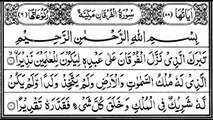 اٰیَاتُهَا (۷۷) سُوْرَةُ الْفُرْقَانِ مَكِّیَّةٌ رُكُوْعَاتُهَا (۶)
بِسْمِ اللّٰهِ الرَّحْمٰنِ الرَّحِیْمِ
تَبٰرَكَ الَّذِیْ نَزَّلَ الْفُرْقَانَ عَلٰی عَبْدِهٖ لِیَكُوْنَ لِلْعٰلَمِیْنَ نَذِیْرَا
الَّذِیْ لَهٗ مُلْكُ السَّمٰوٰتِ وَالْاَرْضِ وَلَمْ یَتَّخِذْ وَلَدًا وَّلَمْ یَكُنْ
لَّهٗ شَرِیْكٌ فِی الْمُلْكِ وَخَلَقَ كُلَّ شَیْءٍ فَقَدَّرَهٗ تَقْدِیْرًا